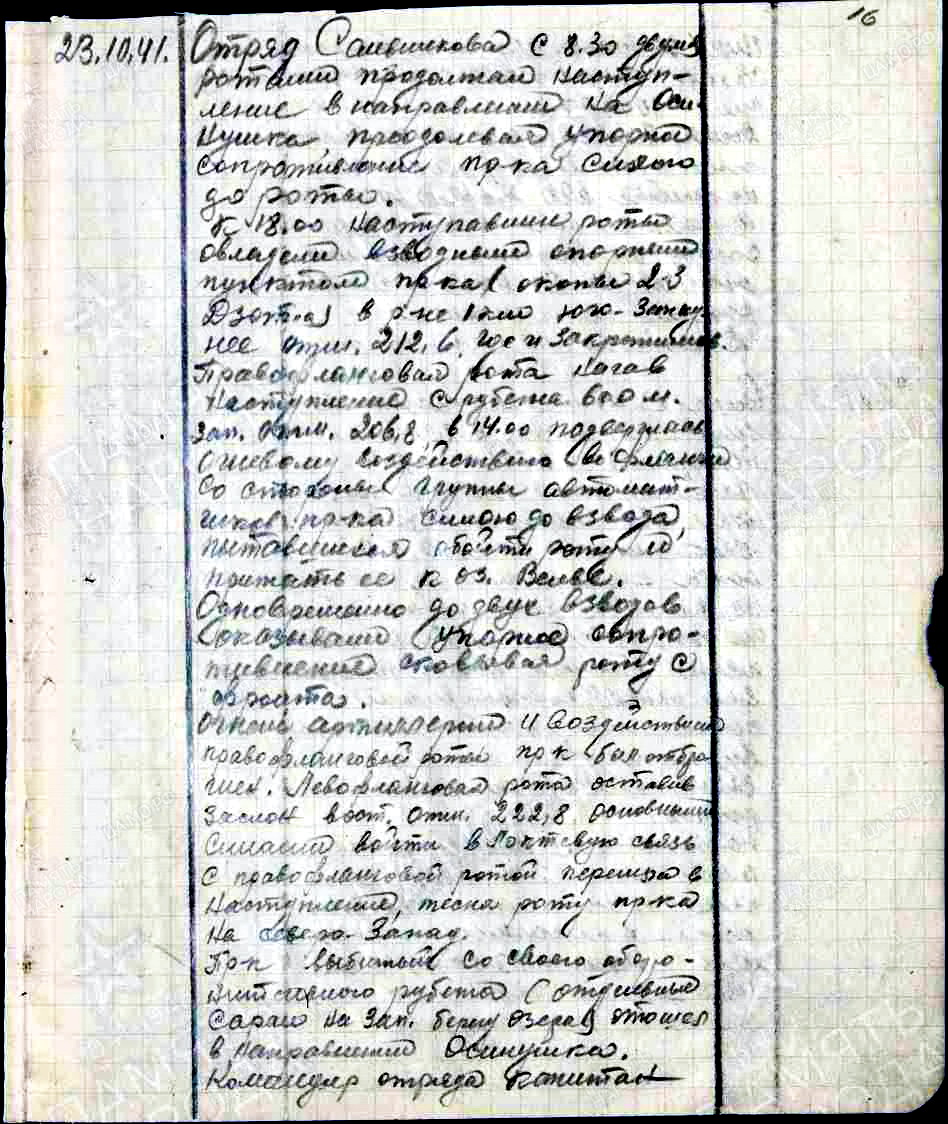 16
23.10.41. Отряд Санькикова с 8.30 двумя
ротами продолжал наступ-
ление в направлении на Оси-
нушка, преодолевая упорное
сопротивление пр-ка силою
до роты.
К 18.00 наступавшие роты
овладели взводным опорным
пунктом пр-ка (окопы 2-3
Дзота) в р-не 1 км юго-запад
нее отм. 212,6, где и закрепились.
Правофланговая рота начав
наступление с рубежа 600 м.
зап. отм. 206,8, в 14.00 подверглась
огневому воздействию во фланги
со стороны группы автомат-
чиков пр-ка силою до взвода,
пытавшихся обойти роту и
прижать ее к оз. Велье.
Одновременно до двух взводов
оказывали упорное сопро-
тивление сковывая роту с
фронта.
Огнем артиллерии и воздействием
правофланговой роты пр-к был отбро
шен. Левофланговая рота оставив
заслон вост. отм. 222,8 основными
силами войти в локтевую связь
с правофланговой ротой перешла в
наступление, тесня роту пр-ка
на северо-запад.
Пр-к выбитый со своего оборо-
нительного рубежа (отдельные
сараи на зап. берегу озера) отошел
в направлении Осинушка.
Командир отряда капитан